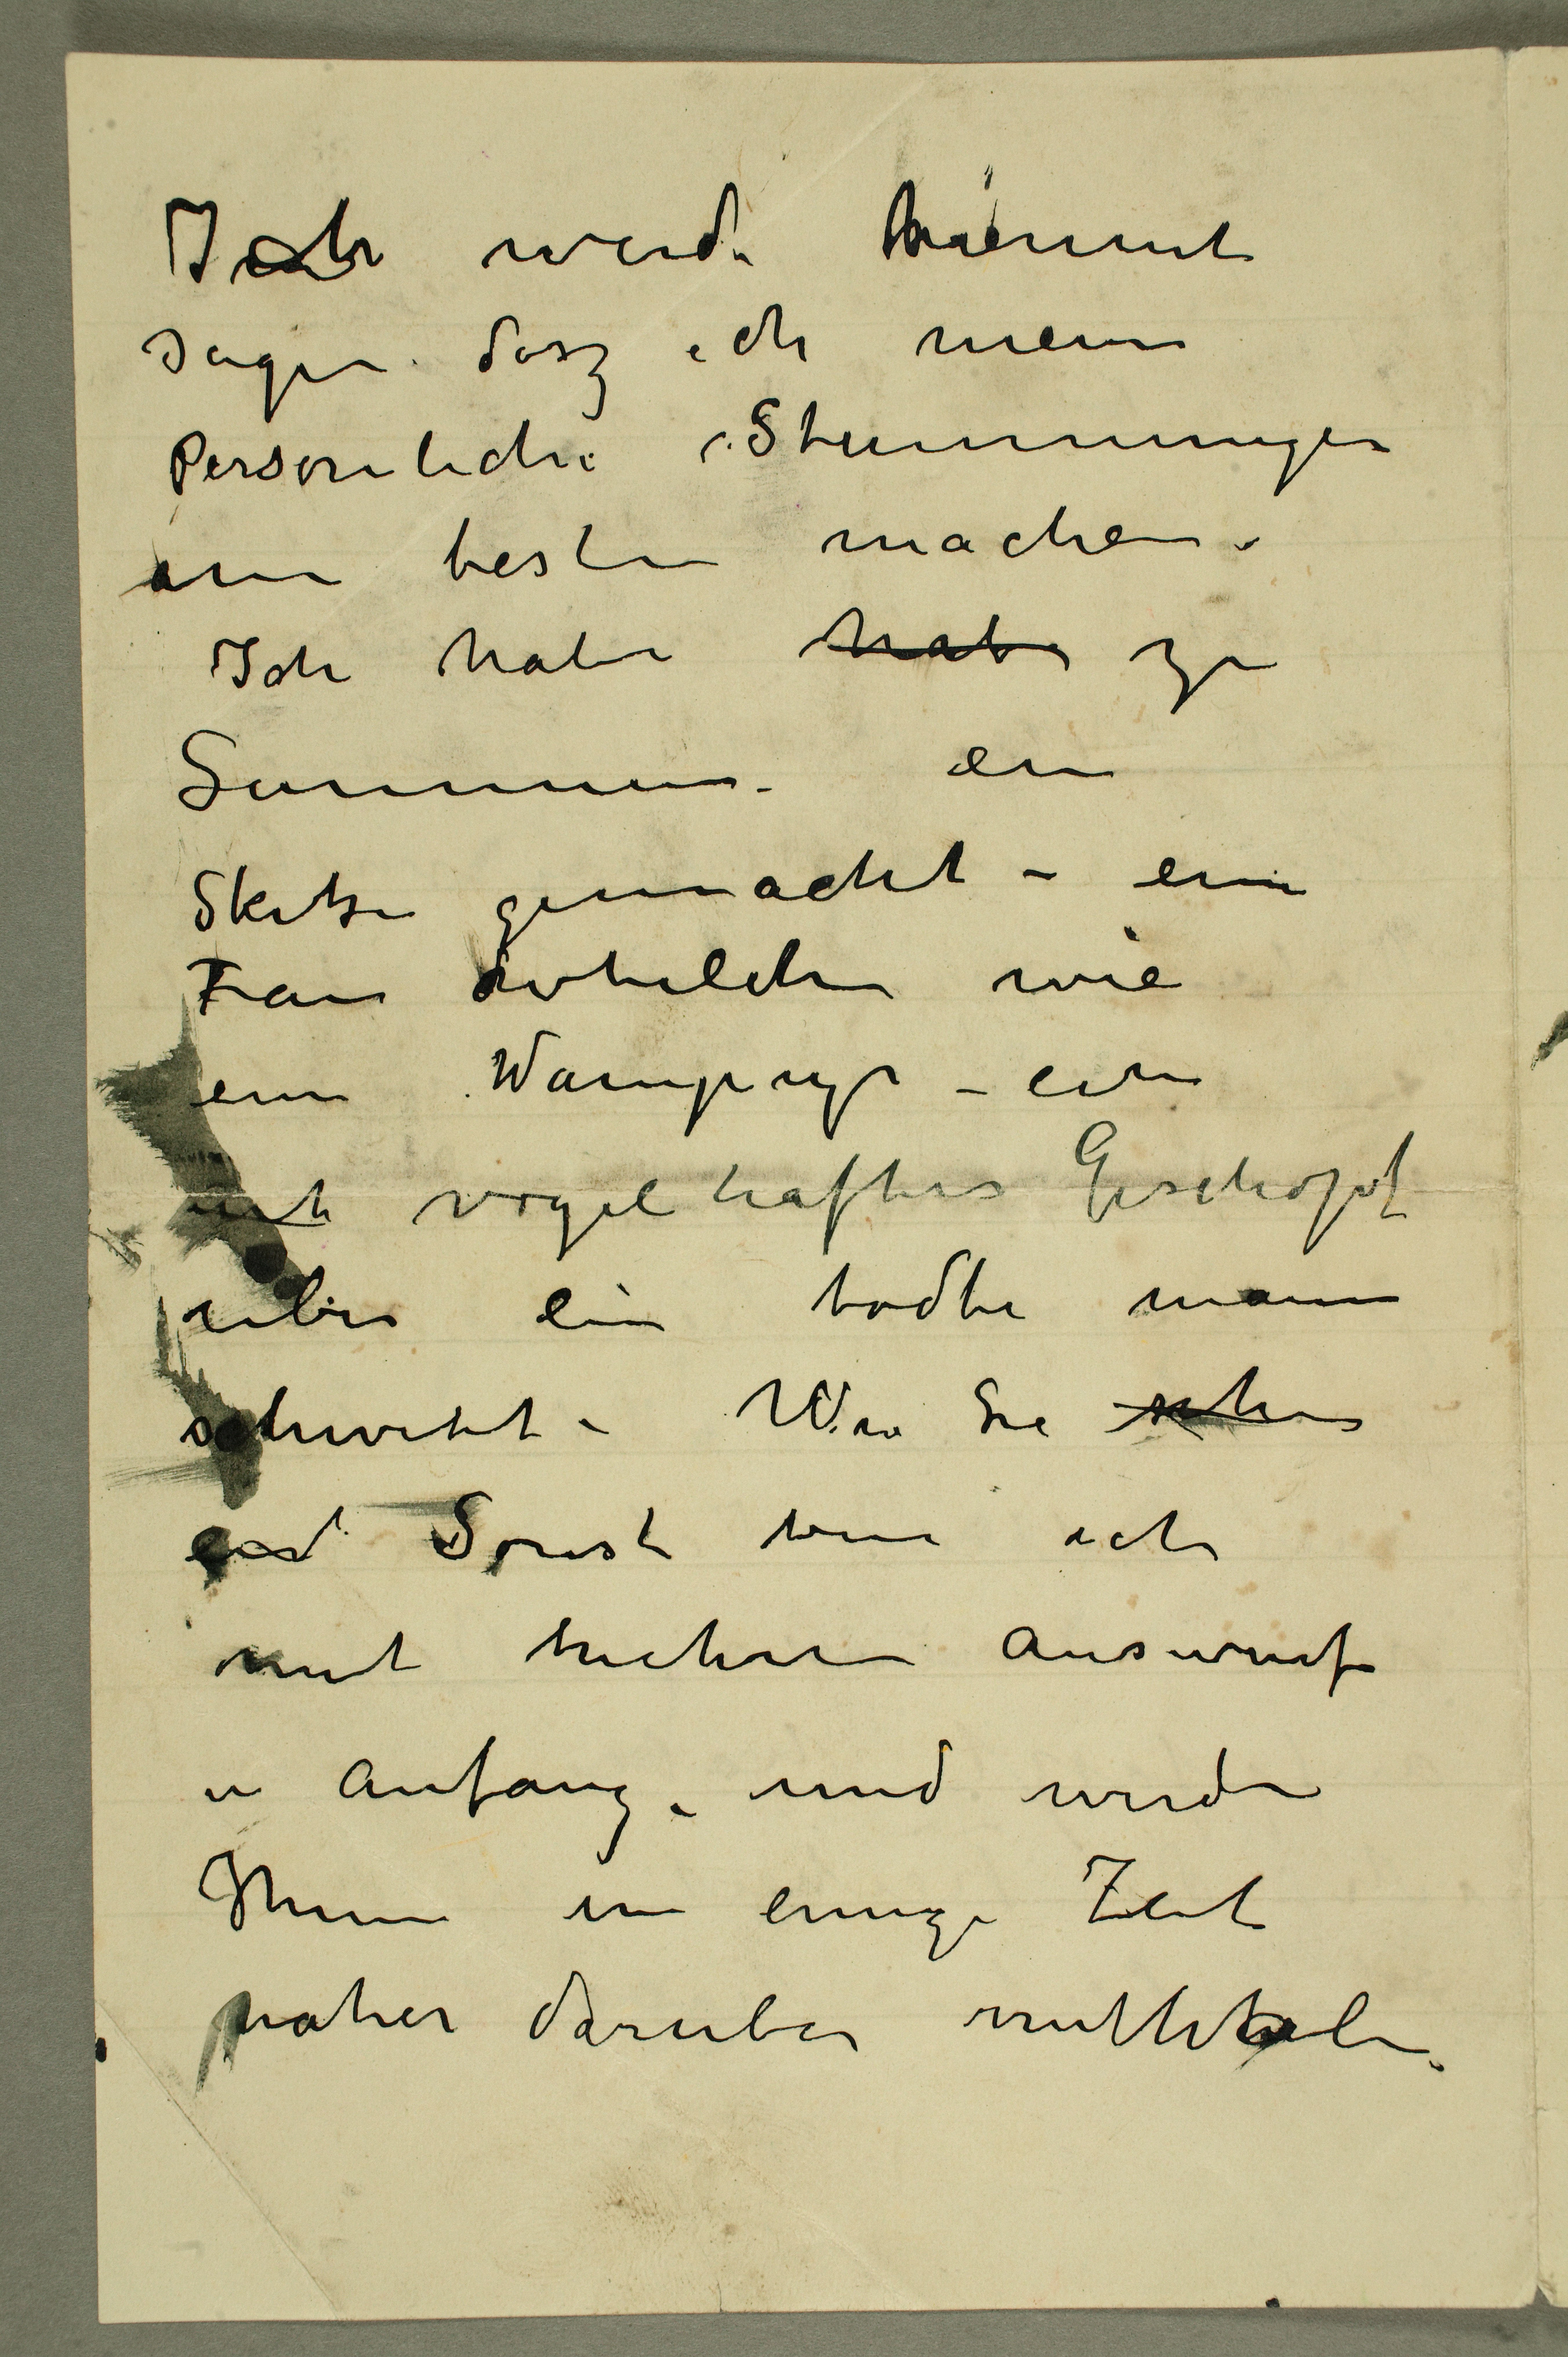 Ich werde hiermit
sagen dasz ich meine
Personliche Stimmungen
am besten machen.
Ich habe hab zu
Summen – ein
Skitze gemacht – eine
Frau
wie
ein Wampyr – ein
vogelhaftes Geschöpf
uber ein todte mann
schwebt – Wie Sie
Sonst bin ich
mit mehrere auswurfe
in anfang. und werde
Ihnen in einige Zeit
naher daruber mittheilen